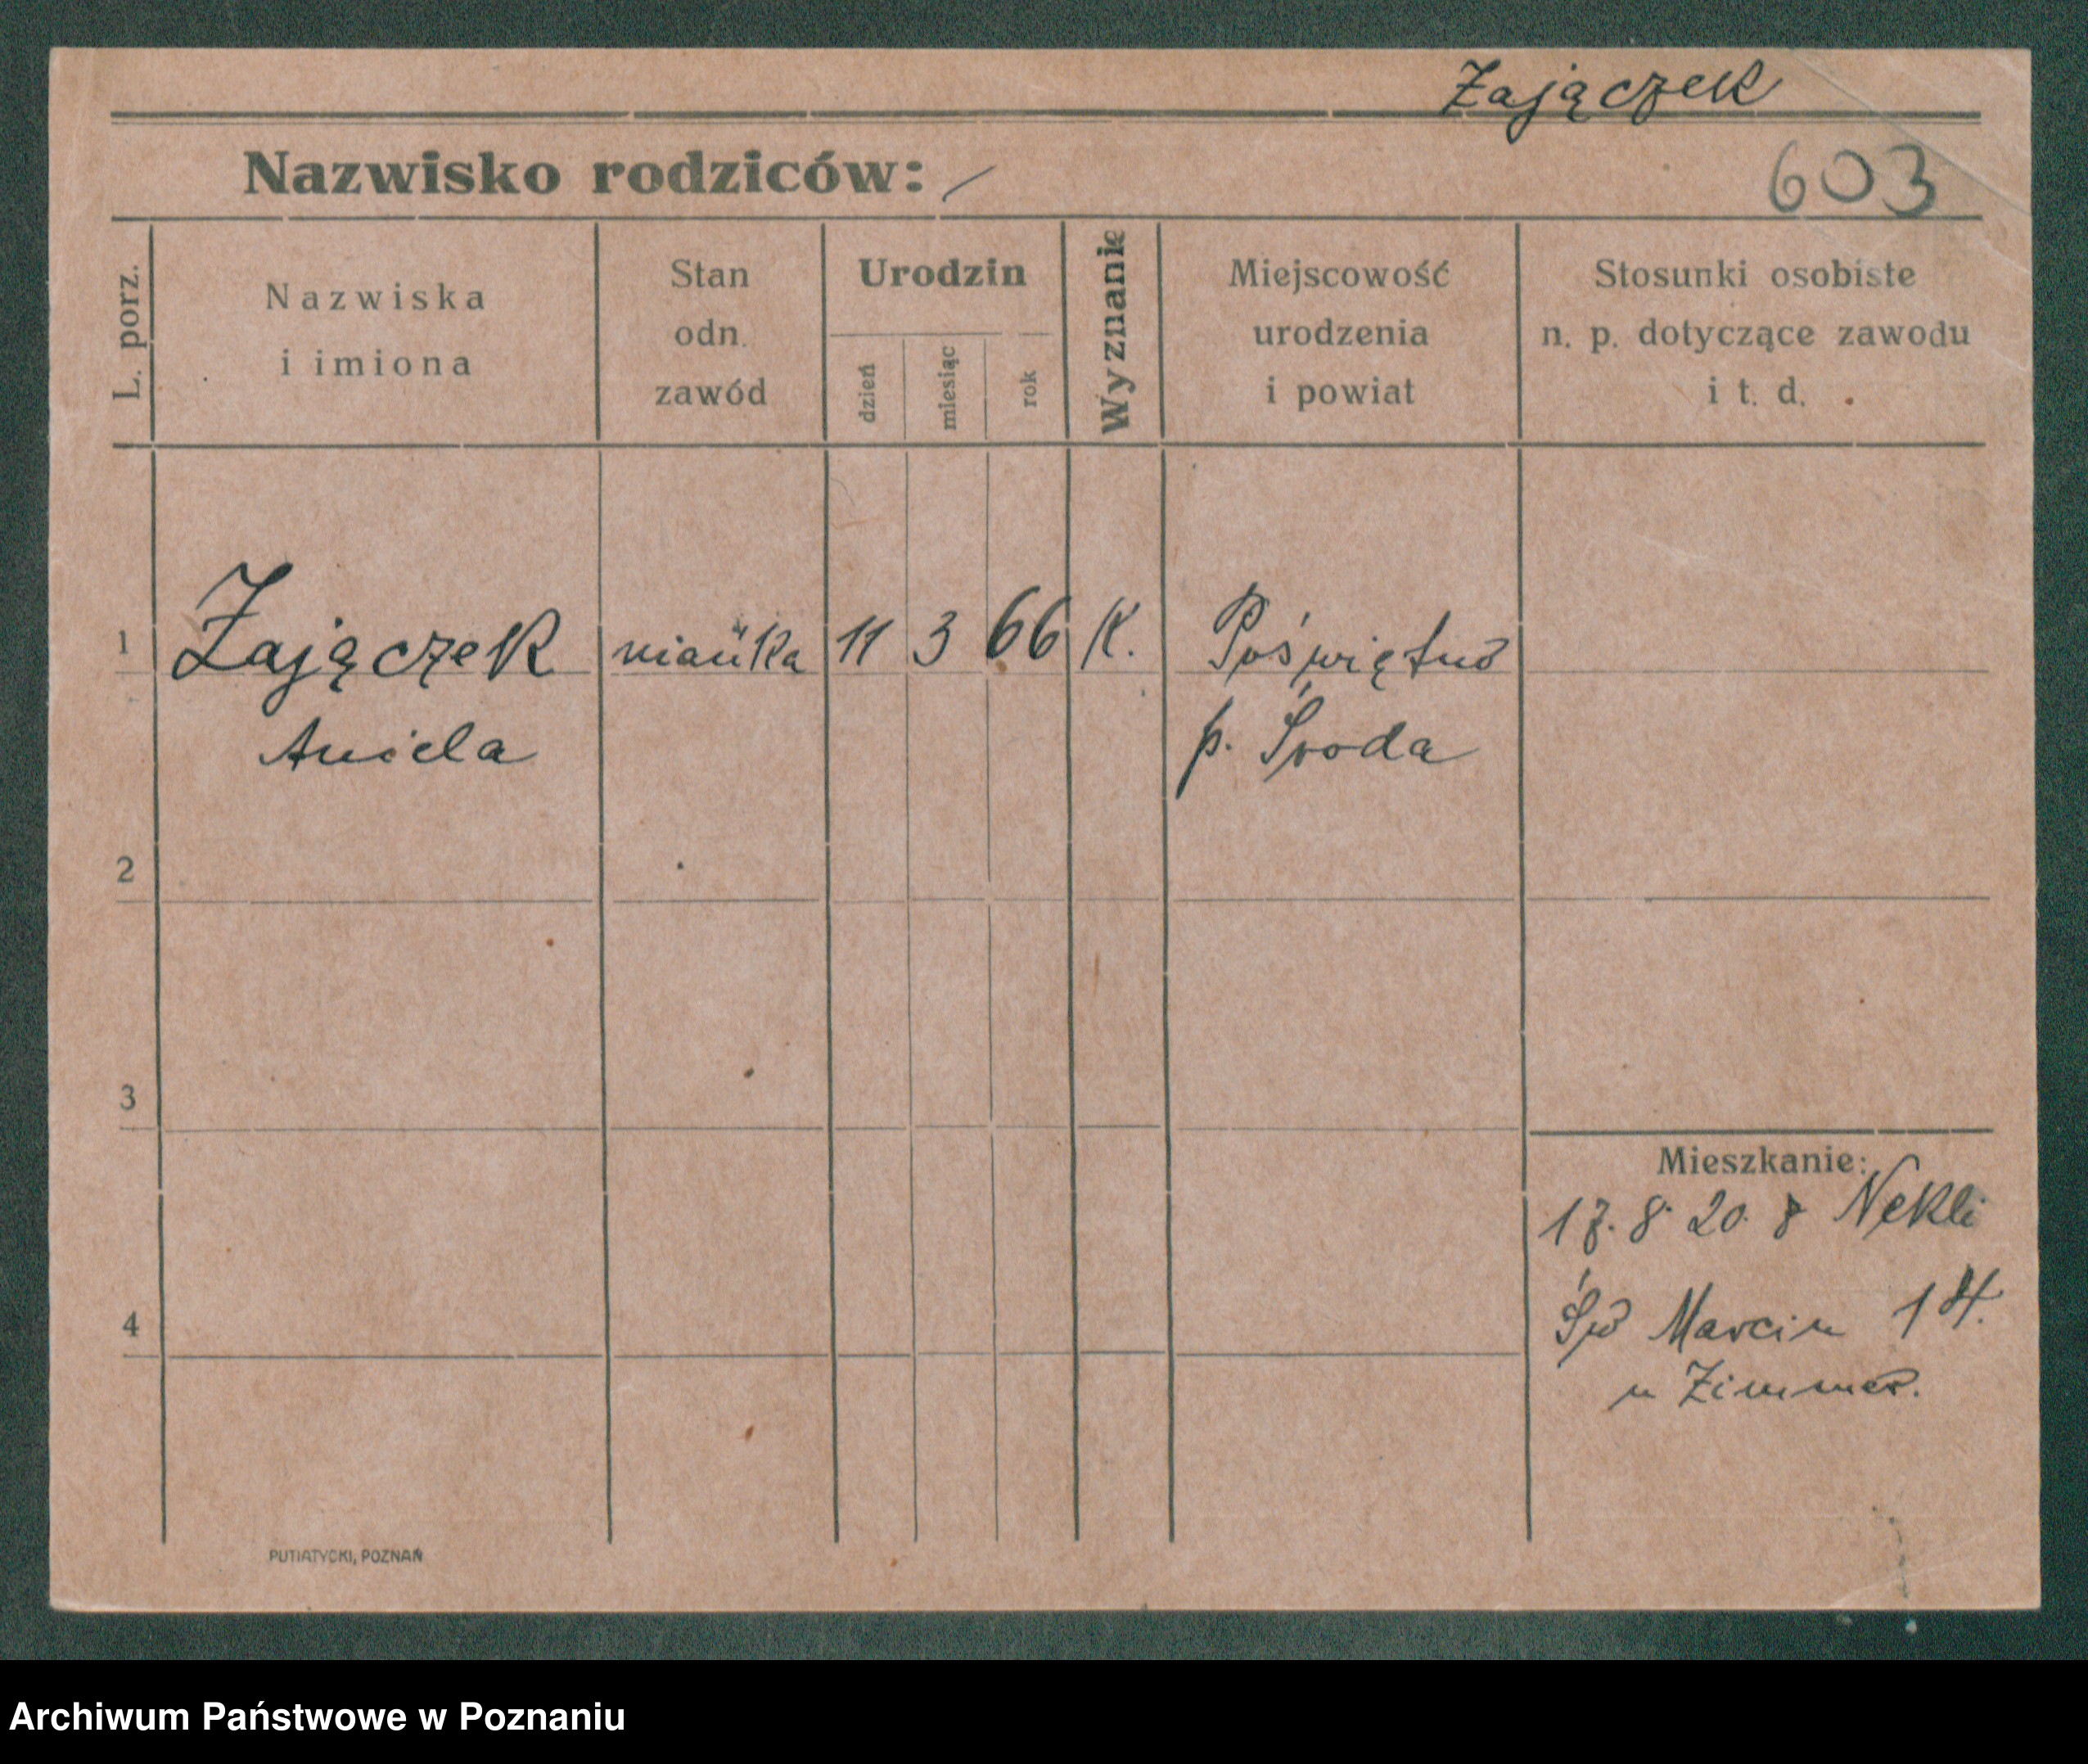 Zajączek
Nazwisko rodziców: /
603
L. porz.
Nazwiska
i imiona
Stan
odn.
zawód
Urodzin
dzień
miesiąc
rok
Wyznanie
Miejscowość
urodzenia
i powiat
Stosunki osobiste
n. p. dotyczące zawodu
i t. d.
1 Zajączek niańka 11 3 66 K. Poświętno
Aniela p. Środa
2
3
4
Mieszkanie:
17. 8. 20. z Nekli
Św Marcin 14.
u Zimmer.
PUTIATYCKI, POZNAŃ
Archiwum Państwowe w Poznaniu